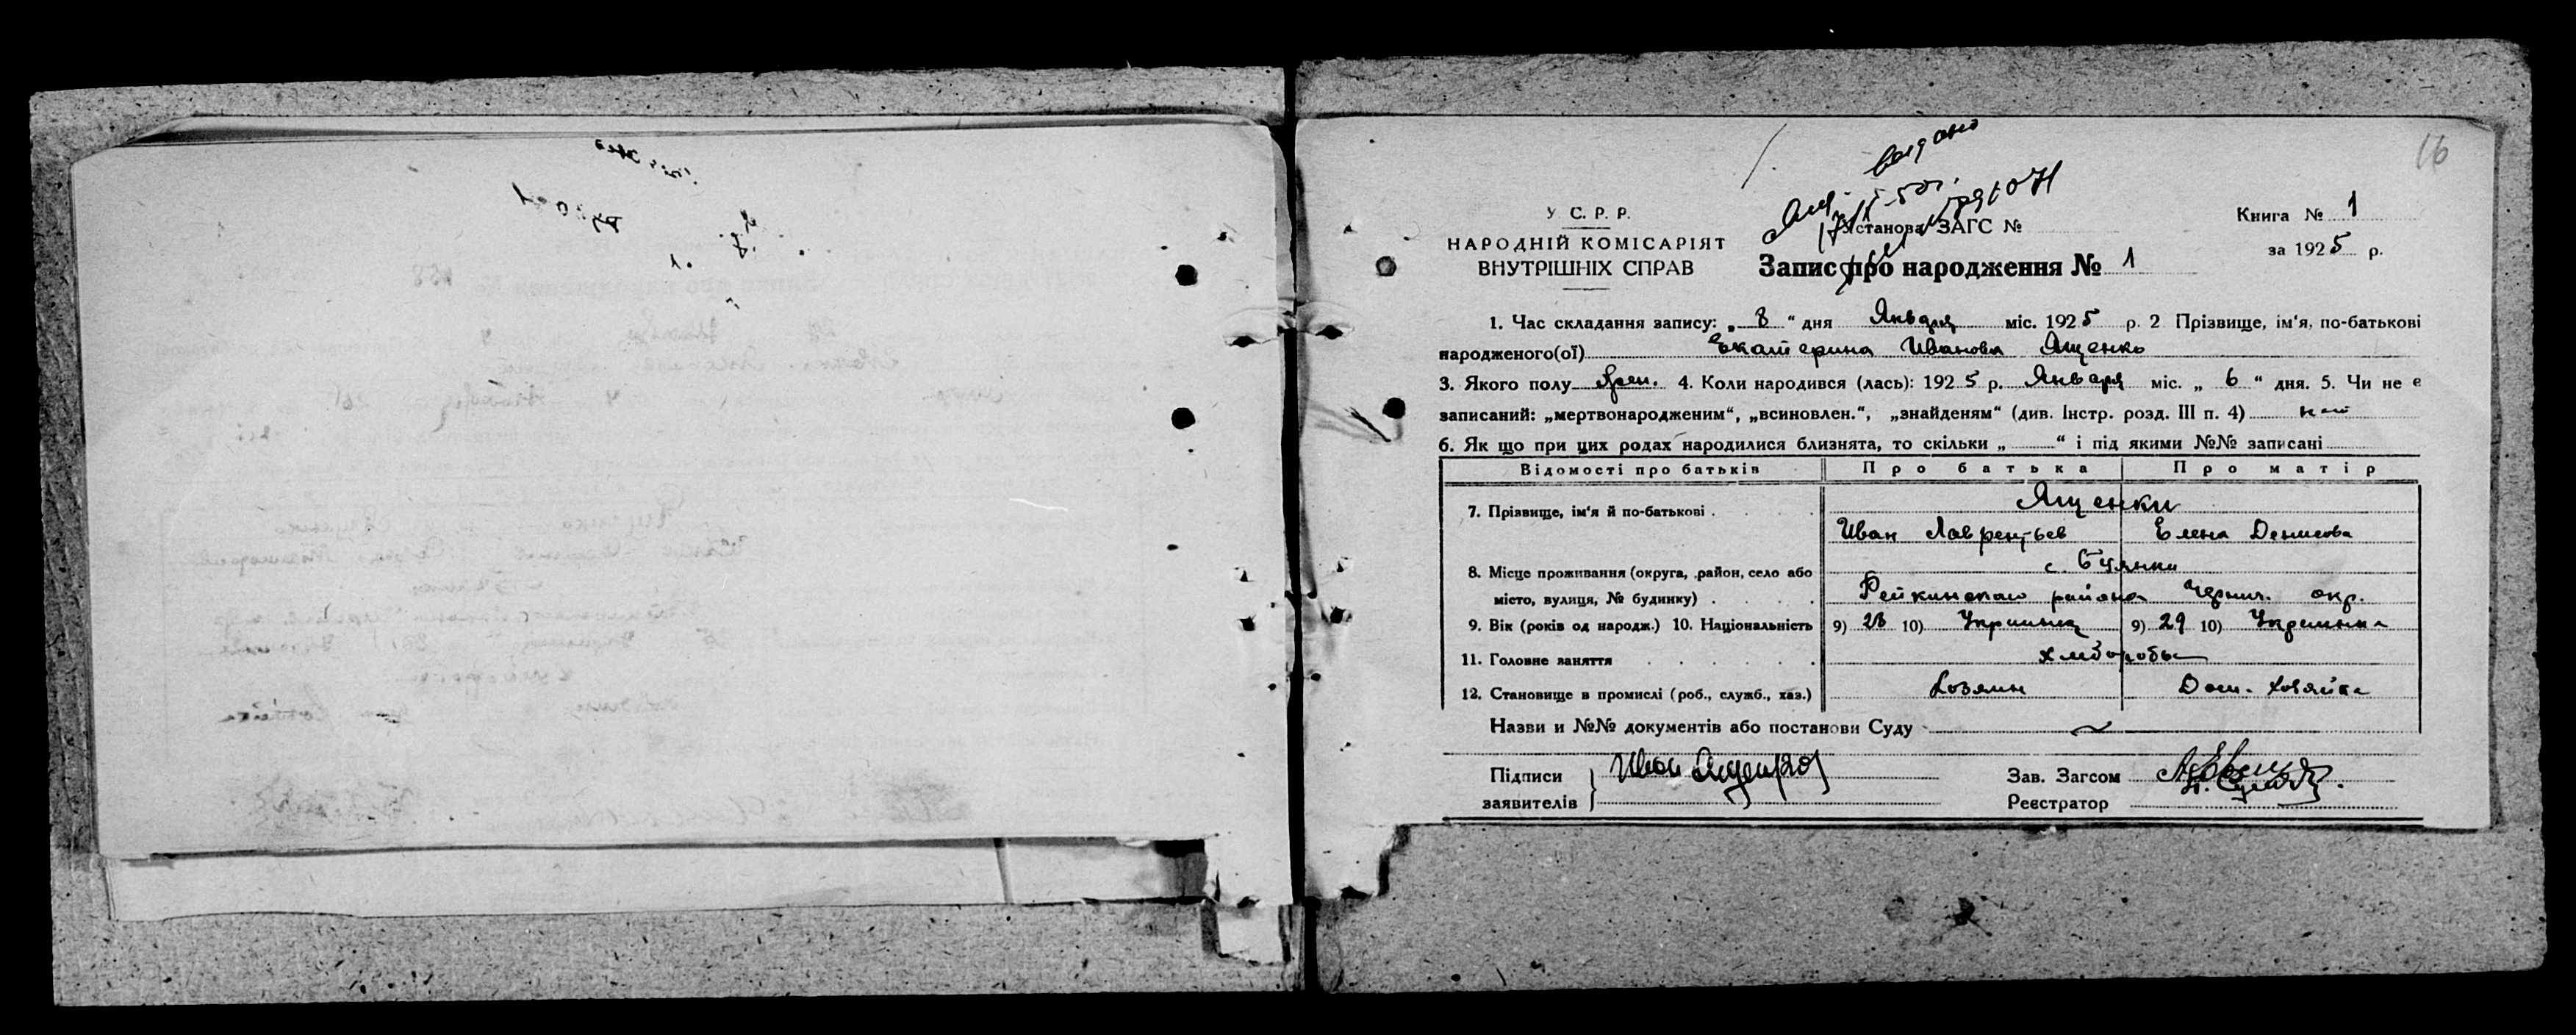 16
видано
У С. Р. Р.
НАРОДНІЙ КОМІСАРІЯТ
ВНУТРІШНІХ СПРАВ
Установа ЗАГС №
Запис про народження № 1
Книга № 1
за 1925 р.
1. Час складання запису: „ 8 “ дня Января міс. 1925 р. 2 Прізвище, ім'я, по-батькові
народженого(ої) Екатерина Иванова Ященко
3. Якого полу Жен. 4. Коли народився (лась): 1925 р. Января міс. „ 6 “ дня. 5. Чи не є
записаний: „мертвонародженим“, „всиновлен.“, „знайденям“ (див. Інстр. розд. III п. 4) нет
6. Як що при цих родах народилися близнята, то скільки „ “ і під якими №№ записані
Відомості про батьків Про батька Про матір
7. Прізвище, ім'я й по-батькові Ященки
Иван Лаврентьев Елена Денисова
8. Місце проживання (округа, район, село або
місто, вулиця, № будинку)
района Черниг. окр.
9. Вік (років од народж.) 10. Національність 9) 28 10) Украинец 9) 29 10) Украинка
11. Головне заняття хлеборобы
12. Становище в промислі (роб., служб., хаз.) Хозяин Дом. хозяйка
Назви и №№ документів або постанови Суду
Підписи
заявителів
Иван
Зав. Загсом
Реєстратор